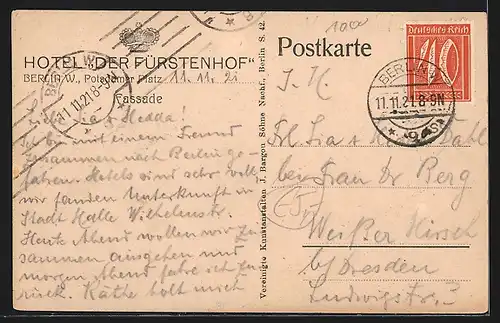 HOTEL „DER FÜRSTENHOF"
BERLIN W., Potsdamer Platz 11.11.21
Fassade
Liebe Lia + Hedda!
Ich bin mit einem Freund
zusammen nach Berlin ge-
fahren. Hotels sind sehr voll,
wir fanden Unterkunft in
Stadt Halle Wilhelmstr.
Heute Abend wollen wir zu
sammen ausgehen und
morgen Abend fahre ich zu
rück. Käthe holt mich
Vereinigte Kunstanstalten J. Bargou Söhne Nachf., Berlin S. 42.
Postkarte
Deutsches Reich
40
BERLIN
11.11.21.8-9N
Frl. Lia +
bei Frau Dr Berg
Weißer Hirsch
b/ Dresden
Ludwigstr.